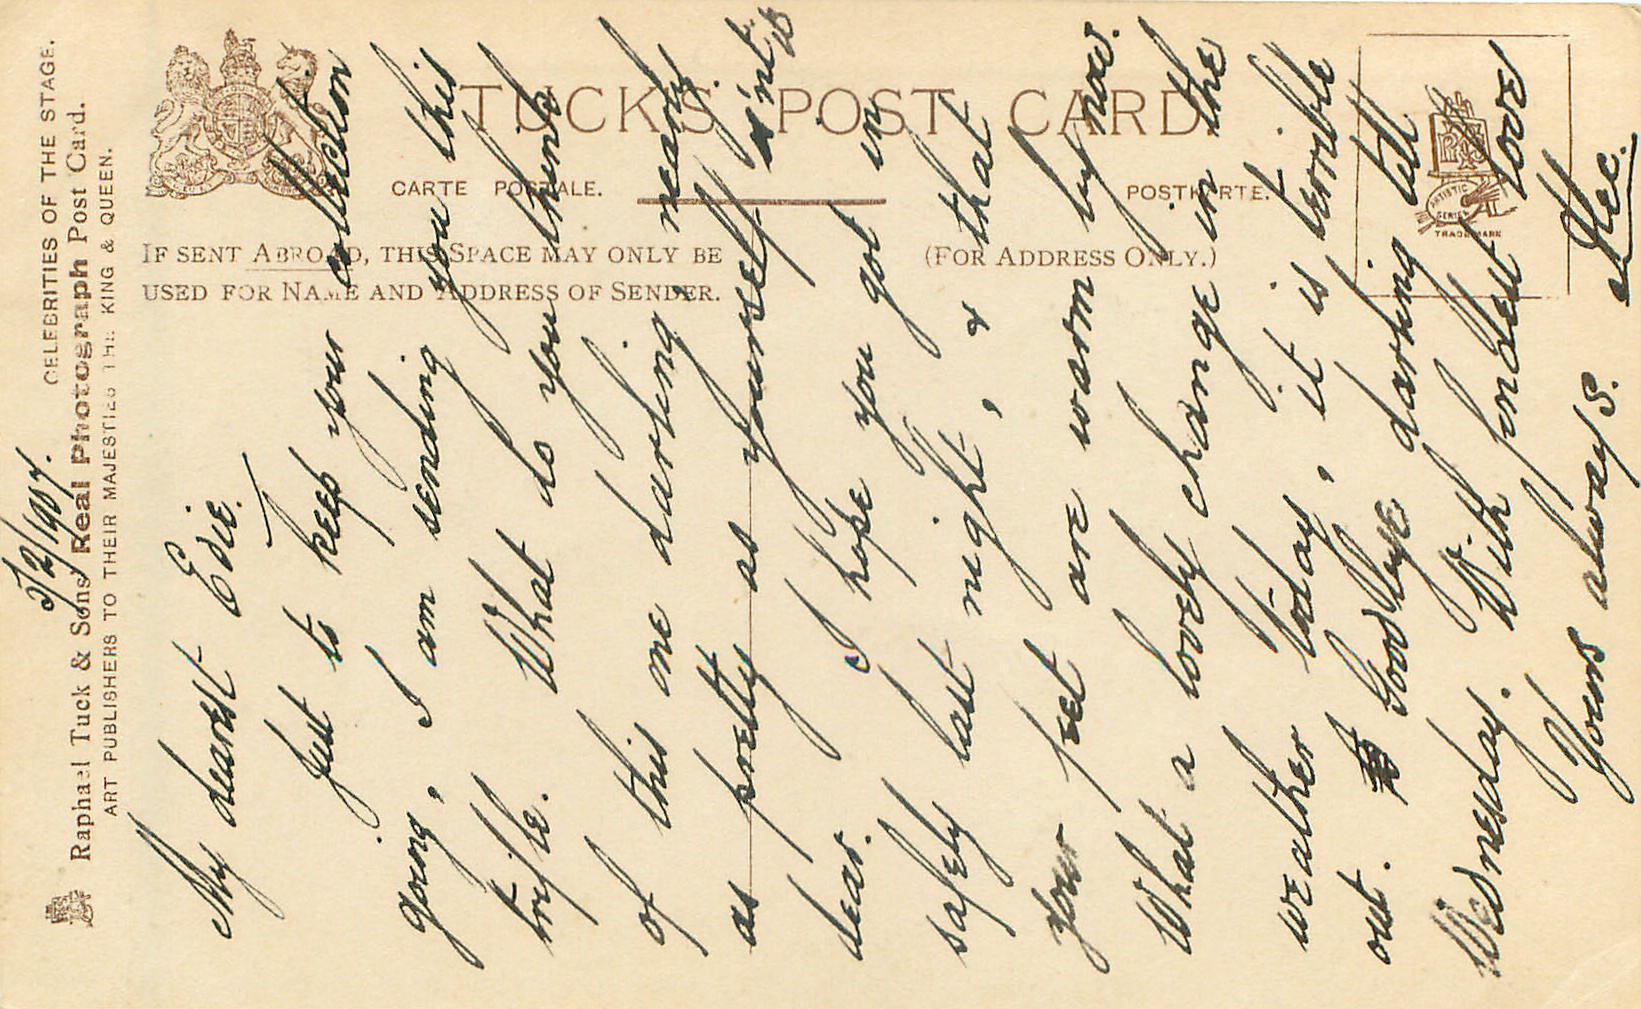 CELEBRITIES OF THE STAGE.
Raphael Tuck & Sons' Real Photograph Post Card.
ART PUBLISHERS TO THEIR MAJESTIES THE KING & QUEEN.
TUCK'S POST CARD
CARTE POSTALE.
POSTKARTE.
IF SENT ABROAD, THIS SPACE MAY ONLY BE
USED FOR NAME AND ADDRESS OF SENDER.
(FOR ADDRESS ONLY.)
ARTISTIC
SERIES
TRADE MARK
5/2/1907.
My dearest Edie.
Just to keep your collection
going, I am sending you this
trifle. What do you think
of this me darling, nearly
as pretty as yourself, is'nt it
dear. I hope you got in
safely last night, & that
your feet are warm by now.
What a lovely change in the
weather today, it is terrible
out. Goodbye darling till
Wednesday. With fondest love
Yours always.
Alec.